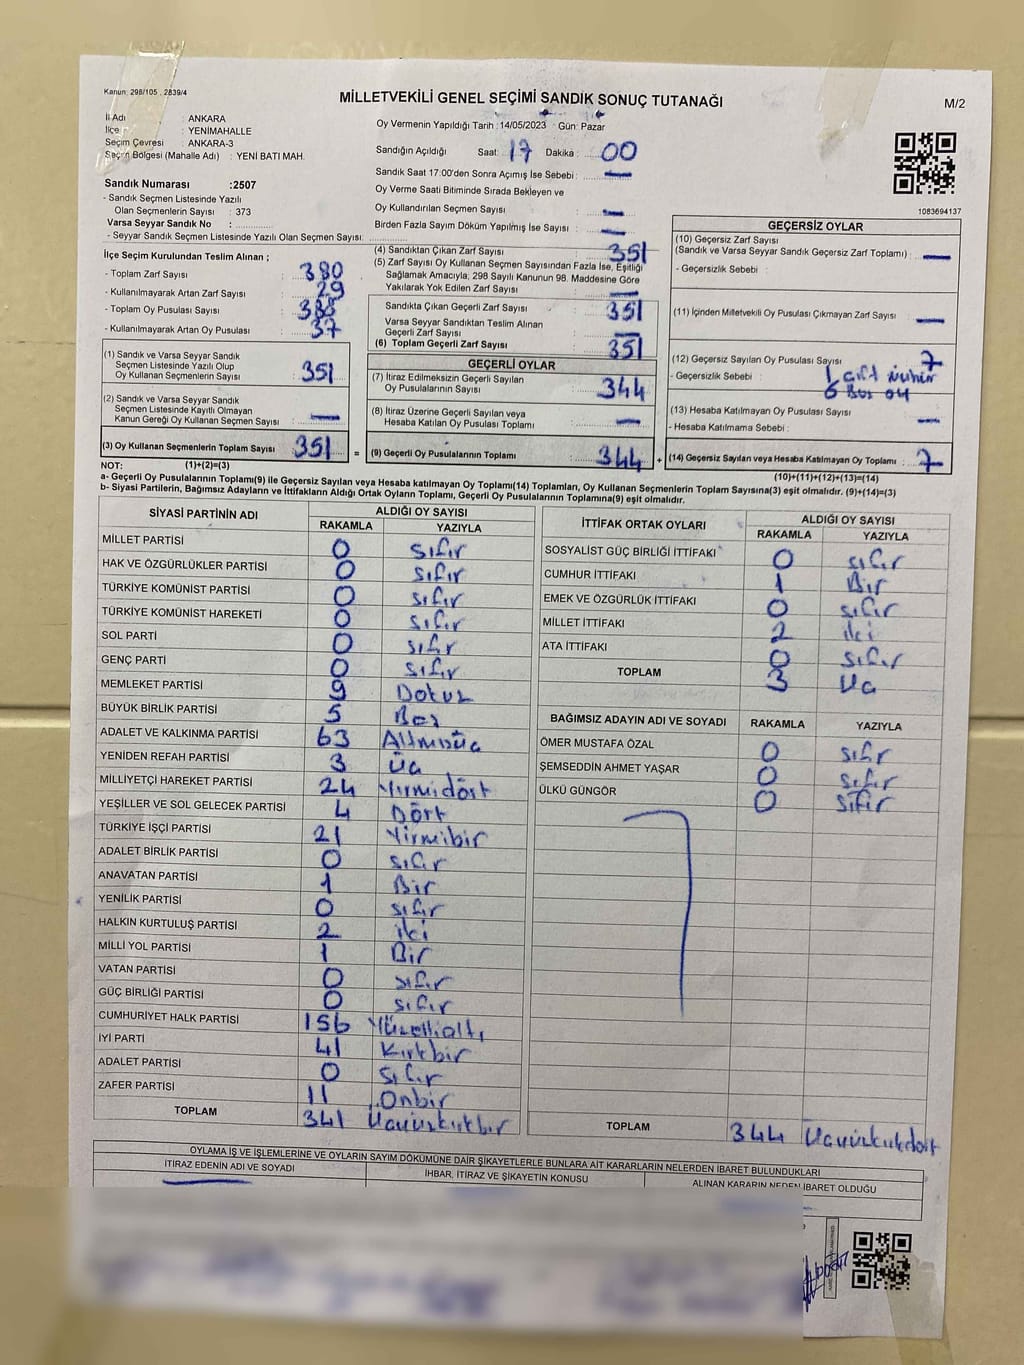 Kanun: 298/105 , 2839/4
MİLLETVEKİLİ GENEL SEÇİMİ SANDIK SONUÇ TUTANAĞI
M/2
İl Adı : ANKARA
İlçe : YENİMAHALLE
Seçim Çevresi : ANKARA-3
Seçim Bölgesi (Mahalle Adı) : YENİ BATI MAH.
Oy Vermenin Yapıldığı Tarih :14/05/2023 Gün: Pazar
Sandığın Açıldığı Saat: 17 Dakika : 00
Sandık Saat 17:00'den Sonra Açımış İse Sebebi : —
Oy Verme Saati Bitiminde Sırada Bekleyen ve
Oy Kullandırılan Seçmen Sayısı : —
Birden Fazla Sayım Döküm Yapılmış İse Sayısı : —
1083694137
Sandık Numarası :2507
- Sandık Seçmen Listesinde Yazılı
Olan Seçmenlerin Sayısı : 373
Varsa Seyyar Sandık No :
- Seyyar Sandık Seçmen Listesinde Yazılı Olan Seçmen Sayısı:
İlçe Seçim Kurulundan Teslim Alınan ;
- Toplam Zarf Sayısı : 380
- Kullanılmayarak Artan Zarf Sayısı : 29
- Toplam Oy Pusulası Sayısı : 388
- Kullanılmayarak Artan Oy Pusulası : 37
(1) Sandık ve Varsa Seyyar Sandık
Seçmen Listesinde Yazılı Olup
Oy Kullanan Seçmenlerin Sayısı : 351
(2) Sandık ve Varsa Seyyar Sandık
Seçmen Listesinde Kayıtlı Olmayan
Kanun Gereği Oy Kullanan Seçmen Sayısı : —
(3) Oy Kullanan Seçmenlerin Toplam Sayısı : 351 =
(4) Sandıktan Çıkan Zarf Sayısı : 351
(5) Zarf Sayısı Oy Kullanan Seçmen Sayısından Fazla İse, Eşitliği
Sağlamak Amacıyla, 298 Sayılı Kanunun 98. Maddesine Göre
Yakılarak Yok Edilen Zarf Sayısı : —
Sandıkta Çıkan Geçerli Zarf Sayısı : 351
Varsa Seyyar Sandıktan Teslim Alınan
Geçerli Zarf Sayısı : —
(6) Toplam Geçerli Zarf Sayısı : 351
GEÇERLİ OYLAR
(7) İtiraz Edilmeksizin Geçerli Sayılan
Oy Pusulalarının Sayısı : 344
(8) İtiraz Üzerine Geçerli Sayılan veya
Hesaba Katılan Oy Pusulası Toplamı : —
(9) Geçerli Oy Pusulalarının Toplamı : 344 +
GEÇERSİZ OYLAR
(10) Geçersiz Zarf Sayısı
(Sandık ve Varsa Seyyar Sandık Geçersiz Zarf Toplamı) : —
- Geçersizlik Sebebi :
(11) İçinden Milletvekili Oy Pusulası Çıkmayan Zarf Sayısı : —
(12) Geçersiz Sayılan Oy Pusulası Sayısı : 7
- Geçersizlik Sebebi : 1 çift mühür
6 Boş oy
(13) Hesaba Katılmayan Oy Pusulası Sayısı : —
- Hesaba Katılmama Sebebi :
(14) Geçersiz Sayılan veya Hesaba Katılmayan Oy Toplamı : 7
NOT: (1)+(2)=(3) (10)+(11)+(12)+(13)=(14)
a- Geçerli Oy Pusulalarının Toplamı(9) ile Geçersiz Sayılan veya Hesaba katılmayan Oy Toplamı(14) Toplamları, Oy Kullanan Seçmenlerin Toplam Sayısına(3) eşit olmalıdır. (9)+(14)=(3)
b- Siyasi Partilerin, Bağımsız Adayların ve İttifakların Aldığı Ortak Oyların Toplamı, Geçerli Oy Pusulalarının Toplamına(9) eşit olmalıdır.
SİYASİ PARTİNİN ADI ALDIĞI OY SAYISI
RAKAMLA YAZIYLA
MİLLET PARTİSİ 0 sıfır
HAK VE ÖZGÜRLÜKLER PARTİSİ 0 sıfır
TÜRKİYE KOMÜNİST PARTİSİ 0 sıfır
TÜRKİYE KOMÜNİST HAREKETİ 0 sıfır
SOL PARTİ 0 sıfır
GENÇ PARTİ 0 sıfır
MEMLEKET PARTİSİ 9 Dokuz
BÜYÜK BİRLİK PARTİSİ 5 Beş
ADALET VE KALKINMA PARTİSİ 63 Altmışüç
YENİDEN REFAH PARTİSİ 3 üç
MİLLİYETÇİ HAREKET PARTİSİ 24 Yirmidört
YEŞİLLER VE SOL GELECEK PARTİSİ 4 Dört
TÜRKİYE İŞÇİ PARTİSİ 21 Yirmibir
ADALET BİRLİK PARTİSİ 0 sıfır
ANAVATAN PARTİSİ 1 Bir
YENİLİK PARTİSİ 0 sıfır
HALKIN KURTULUŞ PARTİSİ 2 iki
MİLLİ YOL PARTİSİ 1 Bir
VATAN PARTİSİ 0 sıfır
GÜÇ BİRLİĞİ PARTİSİ 0 sıfır
CUMHURİYET HALK PARTİSİ 156 Yüzellialtı
İYİ PARTİ 41 Kırkbir
ADALET PARTİSİ 0 sıfır
ZAFER PARTİSİ 11 Onbir
TOPLAM 341 Üçyüzkırkbir
İTTİFAK ORTAK OYLARI ALDIĞI OY SAYISI
RAKAMLA YAZIYLA
SOSYALİST GÜÇ BİRLİĞİ İTTİFAKI 0 sıfır
CUMHUR İTTİFAKI 1 Bir
EMEK VE ÖZGÜRLÜK İTTİFAKI 0 sıfır
MİLLET İTTİFAKI 2 iki
ATA İTTİFAKI 0 sıfır
TOPLAM 3 Üç
BAĞIMSIZ ADAYIN ADI VE SOYADI RAKAMLA YAZIYLA
ÖMER MUSTAFA ÖZAL 0 sıfır
ŞEMSEDDİN AHMET YAŞAR 0 sıfır
ÜLKÜ GÜNGÖR 0 sıfır
TOPLAM 344 Üçyüzkırkdört
OYLAMA İŞ VE İŞLEMLERİNE VE OYLARIN SAYIM DÖKÜMÜNE DAİR ŞİKAYETLERLE BUNLARA AİT KARARLARIN NELERDEN İBARET BULUNDUKLARI
İTİRAZ EDENİN ADI VE SOYADI İHBAR, İTİRAZ VE ŞİKAYETİN KONUSU ALINAN KARARIN NEDEN İBARET OLDUĞU